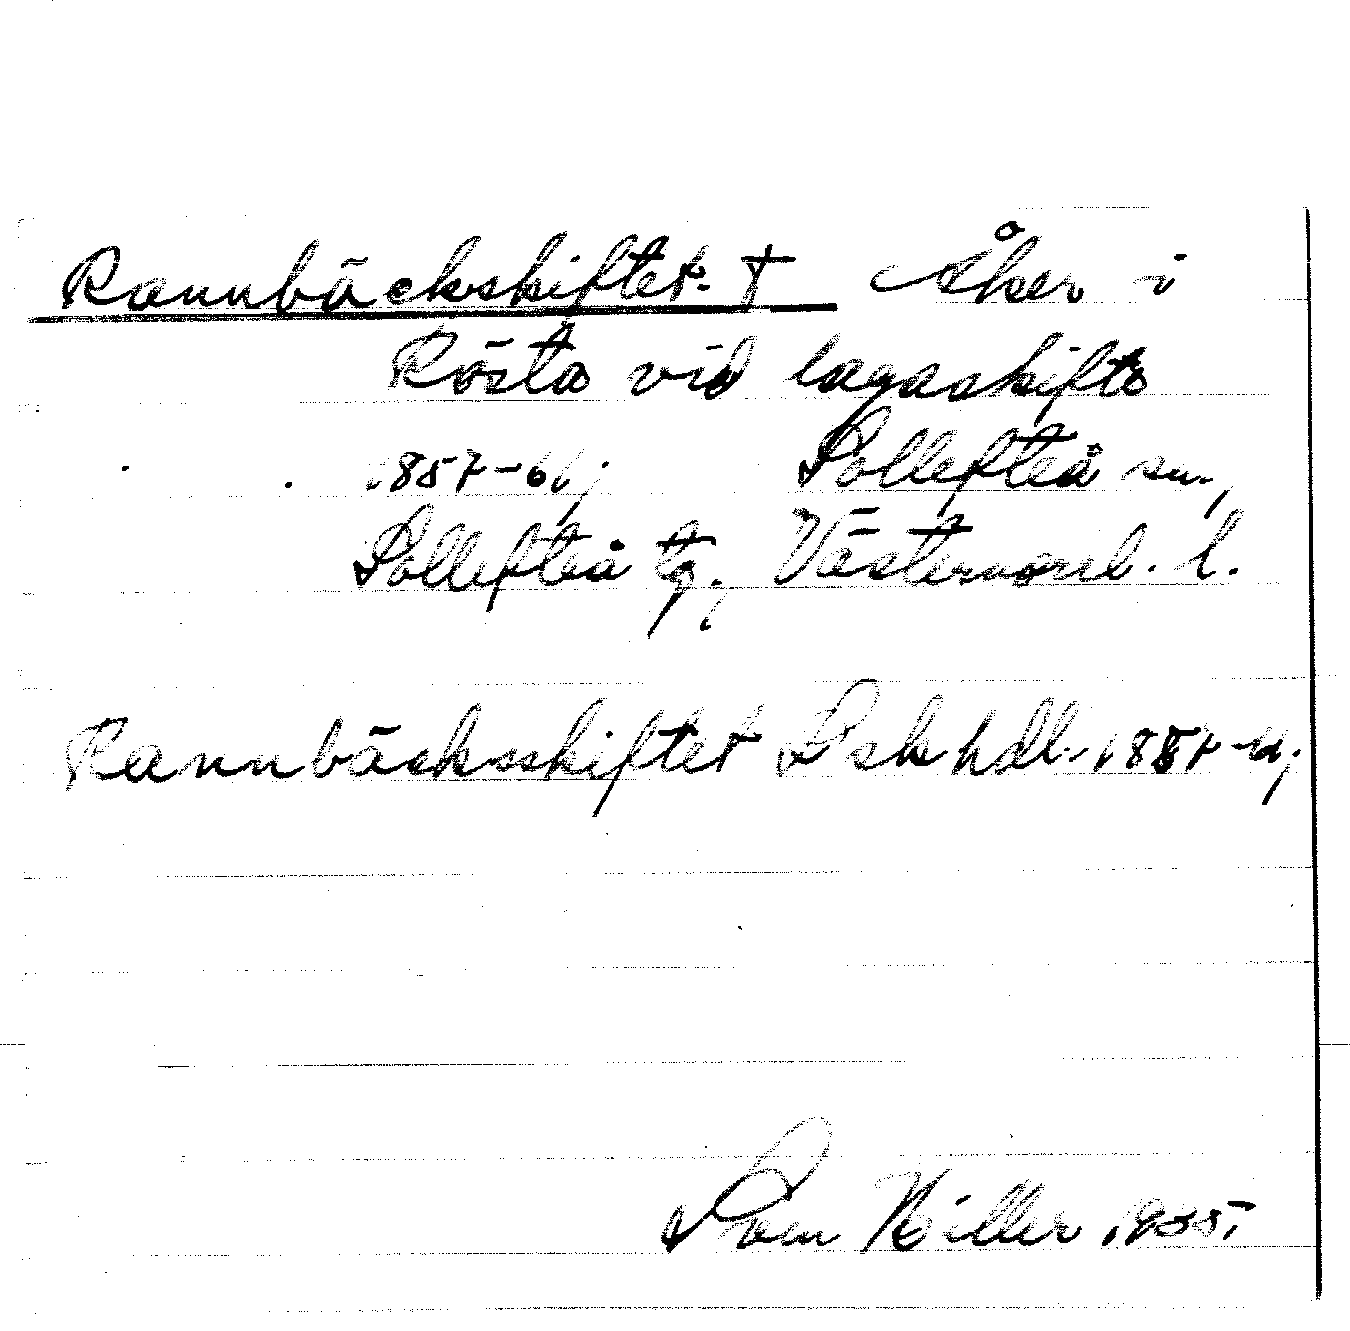 Rannbäckskiftet. † Åker i
Rösta vid lagaskifte
1857-61; Sollefteå sn.,
Sollefteå tg., Västernorrl. l.
Rannbäcksskiftet L sk hdl. 1857-61;
Som Hiller 1935.